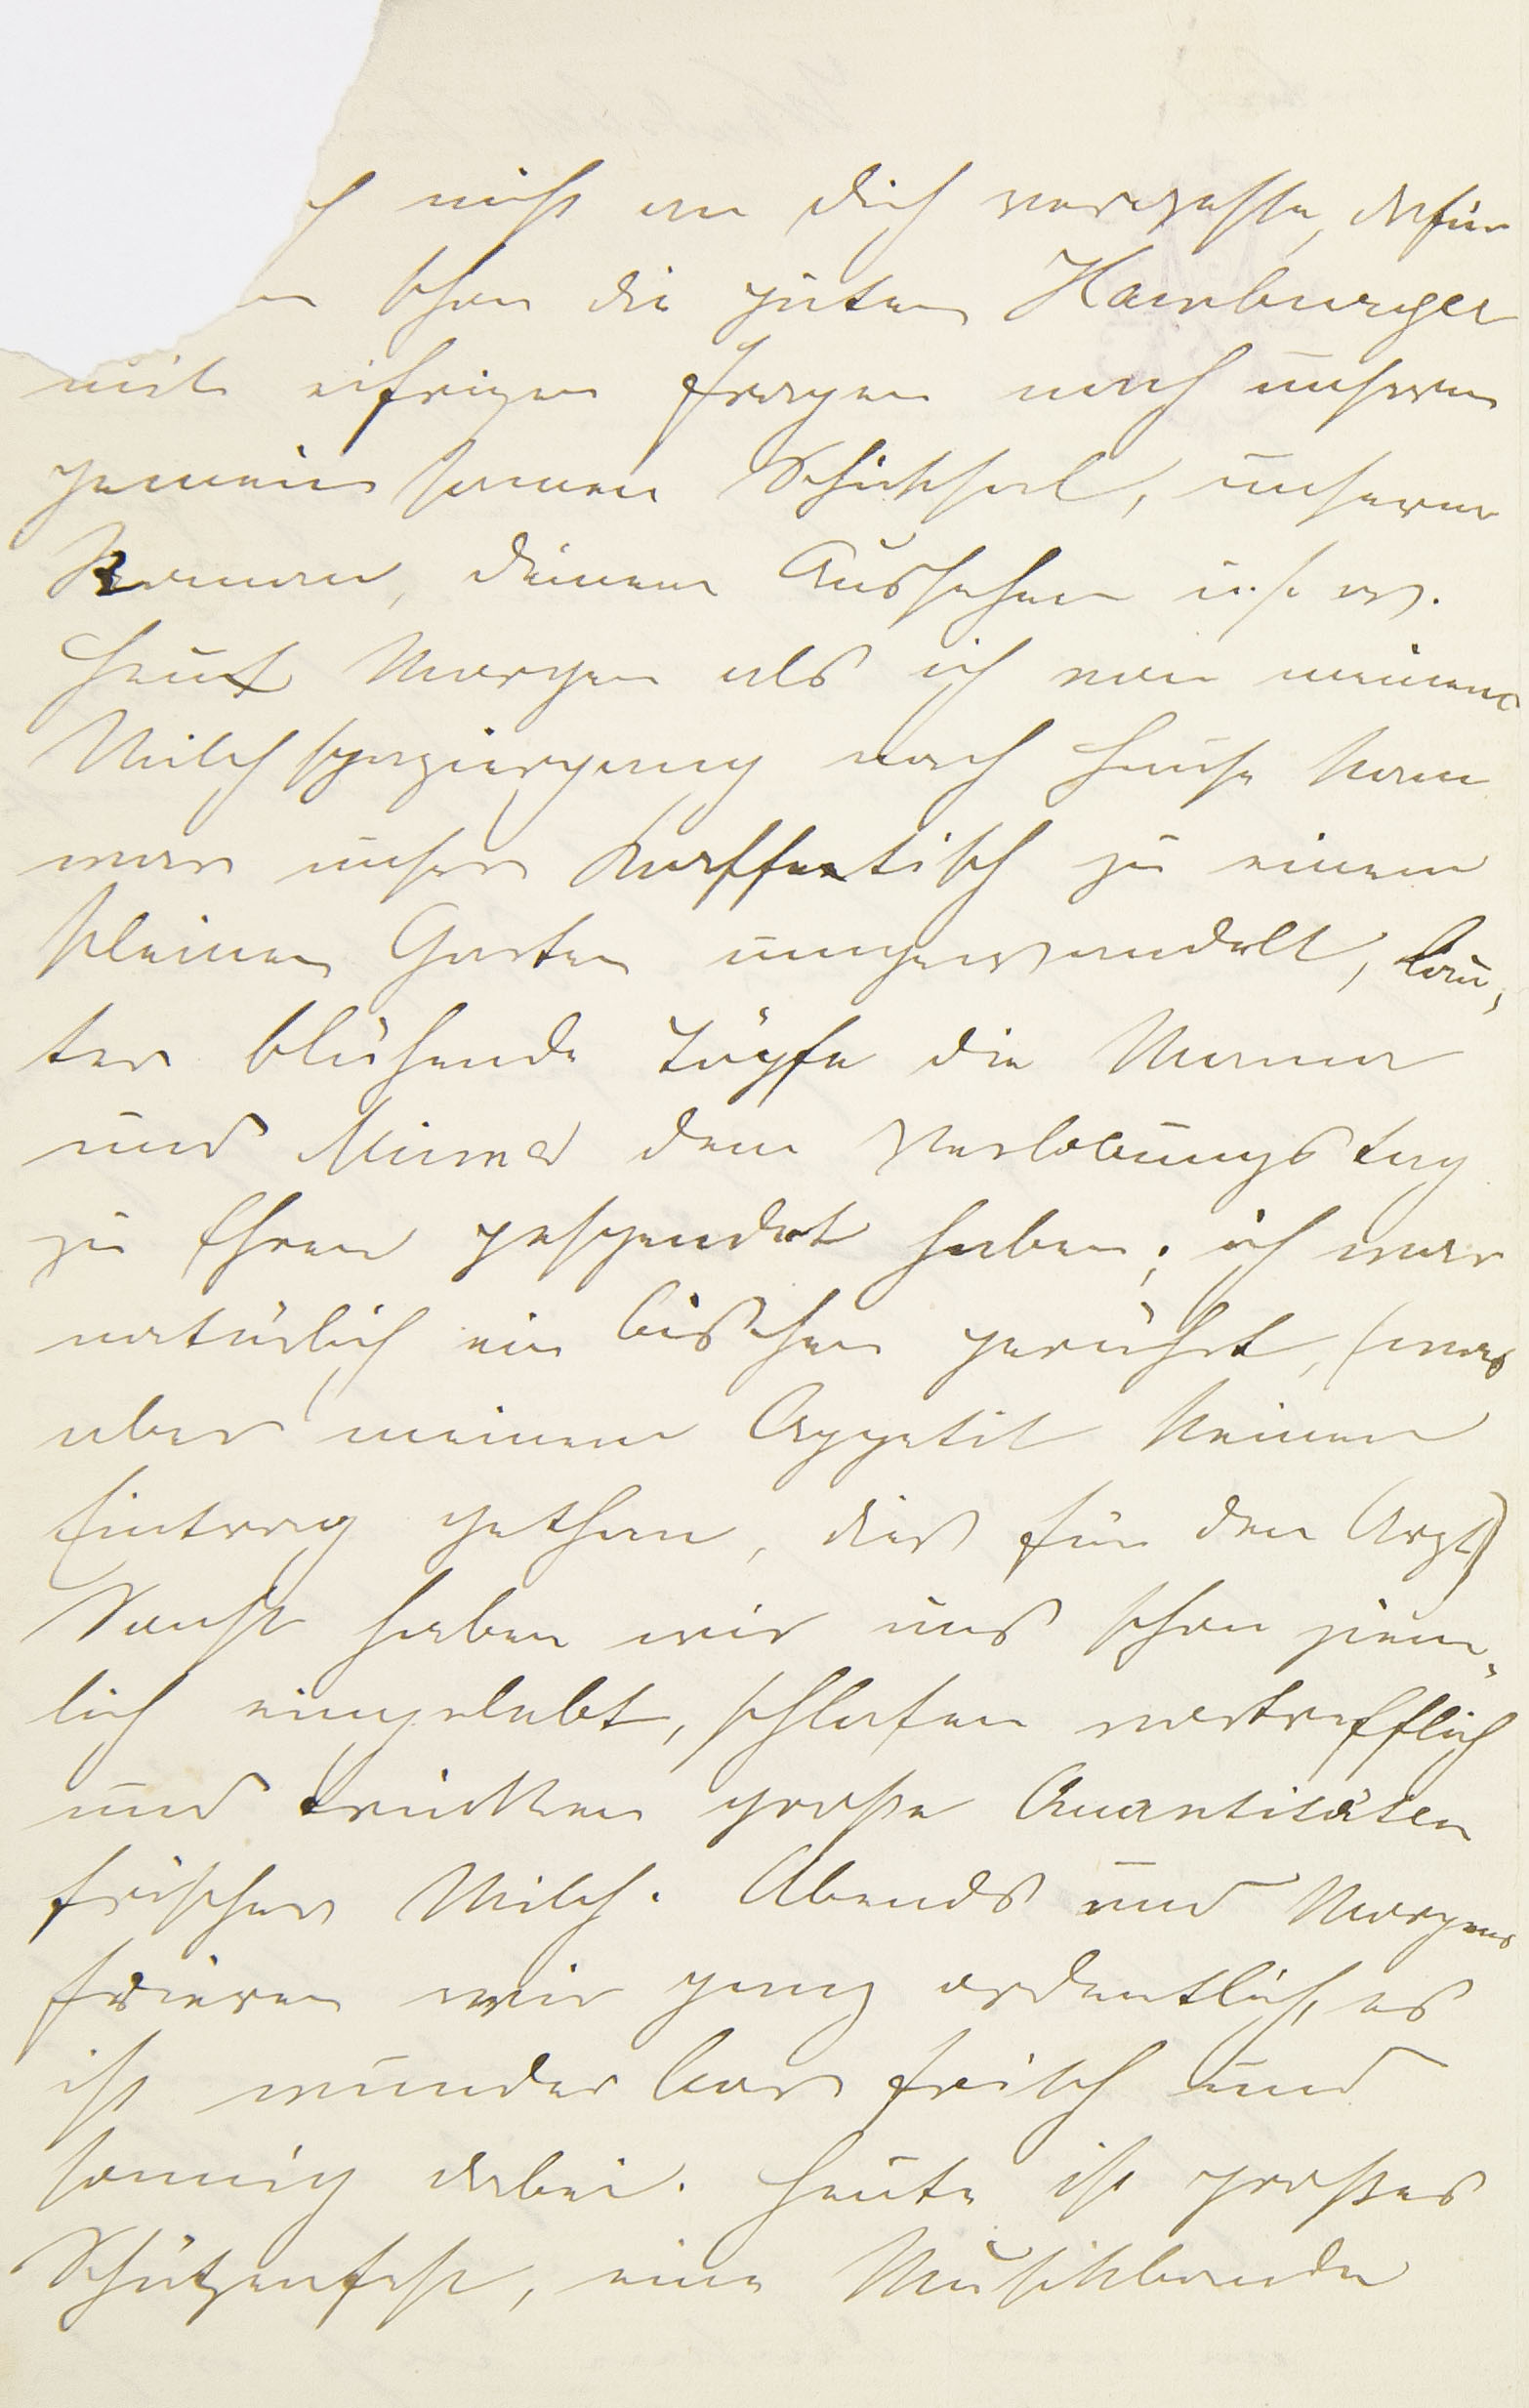 nicht an Dich verdachte, dafür
schon die guten Hamburger
mit eifrigen Fragen nach unserm
gemein samen Schicksal, unserm
Roman, Deinem Aussehen u. s. w.
Heut Morgen als ich von meinem
Milchspaziergang nach Hause kam
war unser Kaffeetisch zu einem
kleinen Garten umgewandelt, lau,
ter blühende Töpfe die Mama
und Minna dem Verlobungstag
zu Ehren gespendet haben; ich war
natürlich ein bischen gerührt, (was
aber meinem Appetit keinen
Eintrag gethan, dies für den Arzt)
Sonst haben wir uns schon ziem,
lich eingelebt, schlafen vortrefflich
und trinken große Quantitäten
frischer Milch. Abends und Morgens
frieren wir ganz ordentlich, es
ist wunderbar frisch und
sonnig dabei. Heute ist großes
Schützenfest, eine Musikbande